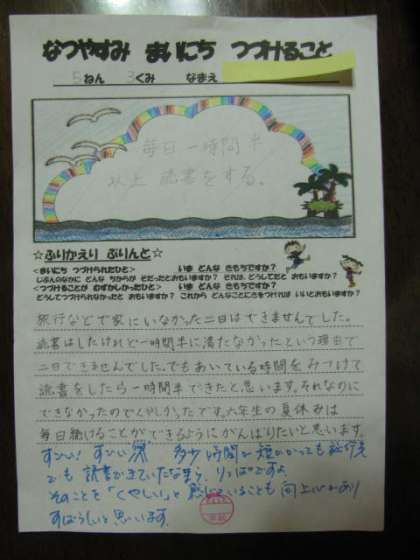 なつやすみ まいにち つづけること
5ねん 3くみ なまえ
毎日一時間半
以上 読書をする。
☆ふりかえり ぷりんと☆
<まいにち つづけられたひと> いま どんな きもちですか?
じぶんのなかに どんな ちからが そだったとおもいますか? それは、どうしてだと おもいますか?
<つづけることが むずかしかったひと> いま どんな きもちですか?
どうしてつづけられなかったと おもいますか? これから どんなことにきをつければ いいとおもいますか?
旅行などで家にいなかった二日はできませんでした。
読書はしたけれど一時間半に満たなかったという理由で
二日できませんでした。でもあいている時間をみつけて
読書をしたら一時間半できたと思います。それなのに
できなかったのでとてもくやしかったです。六年生の夏休みは
毎日続けることができるようにがんばりたいと思います。
すごい! すごい 多少時間が
でも 読書ができていたなら、りっぱですよ
そのことを「くやしい」と感じていることも 向上心があり
すばらしいと思います。